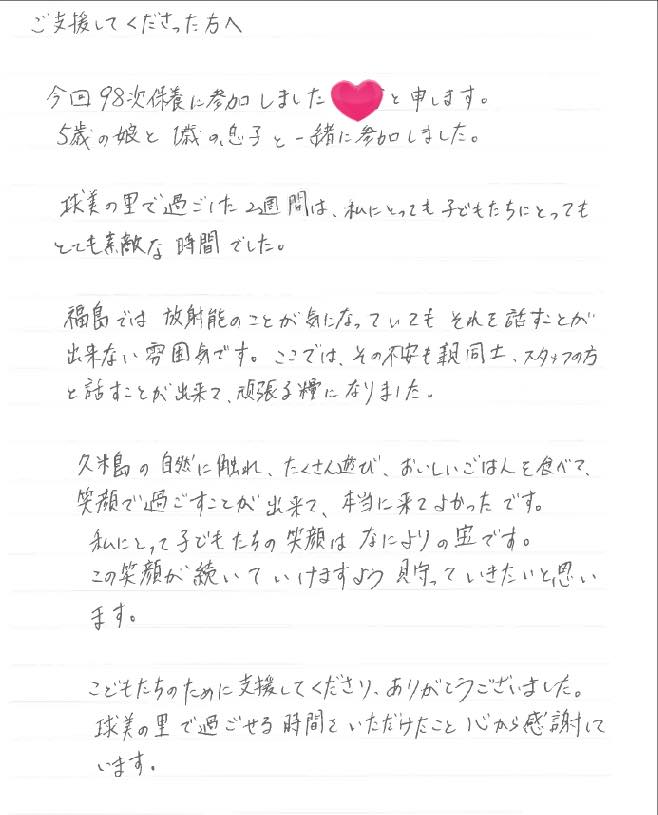 ご支援してくださった方へ
今回98次保養に参加しました と申します。
5歳の娘と1歳の息子と一緒に参加しました。
球美の里で過ごした2週間は、私にとっても子どもたちにとっても
とても素敵な時間でした。
福島では放射能のことが気になっていてもそれを話すことが
出来ない雰囲気です。ここでは、その不安も親同士、スタッフの方
と話すことが出来て、頑張る糧になりました。
久米島の自然に触れ、たくさん遊び、おいしいごはんを食べて、
笑顔で過ごすことが出来て、本当に来てよかったです。
私にとって子どもたちの笑顔はなによりの宝です。
この笑顔が続いていけますよう見守っていきたいと思い
ます。
こどもたちのために支援してくださり、ありがとうございました。
球美の里で過ごせる時間をいただけたこと心から感謝して
います。